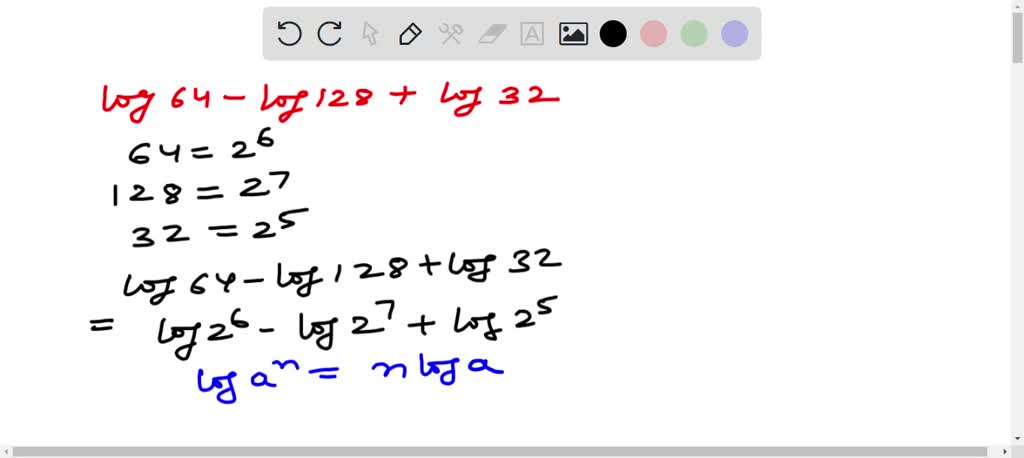 log 64 - log 128 + log 32
64 = 2⁶
128 = 2⁷
32 = 2⁵
log 64 - log 128 + log 32
= log 2⁶ - log 2⁷ + log 2⁵
log aⁿ = n log a